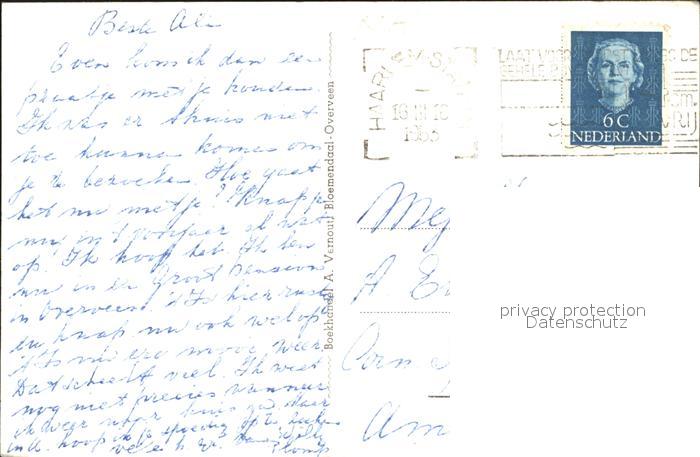 Beste Ali
Even kom ik dan een
praatje met je houden.
Ik was er thuis niet
toe kunnen komen om
je te bezoeken. Hoe gaat
het nu met je? Knap je
nu in 't voorjaar al wat
op. Ik hoop het. Ik ben
nu in een Groot Pension
in Overveen. 't Is hier rustig
en knap nu ook wel op.
't Is nu zoo mooi weer
Dat scheelt veel. Ik weet
nog niet precies wanneer
ik weer naar huis ga. Maar
hoop je spoedig op te zoeken
Boekhandel A. Vernout, Bloemendaal-Overveen
HAARLEM-STATION
16 III 18
1953
6C
NEDERLAND
Mej
A
Corn
Am
privacy protection
Datenschutz